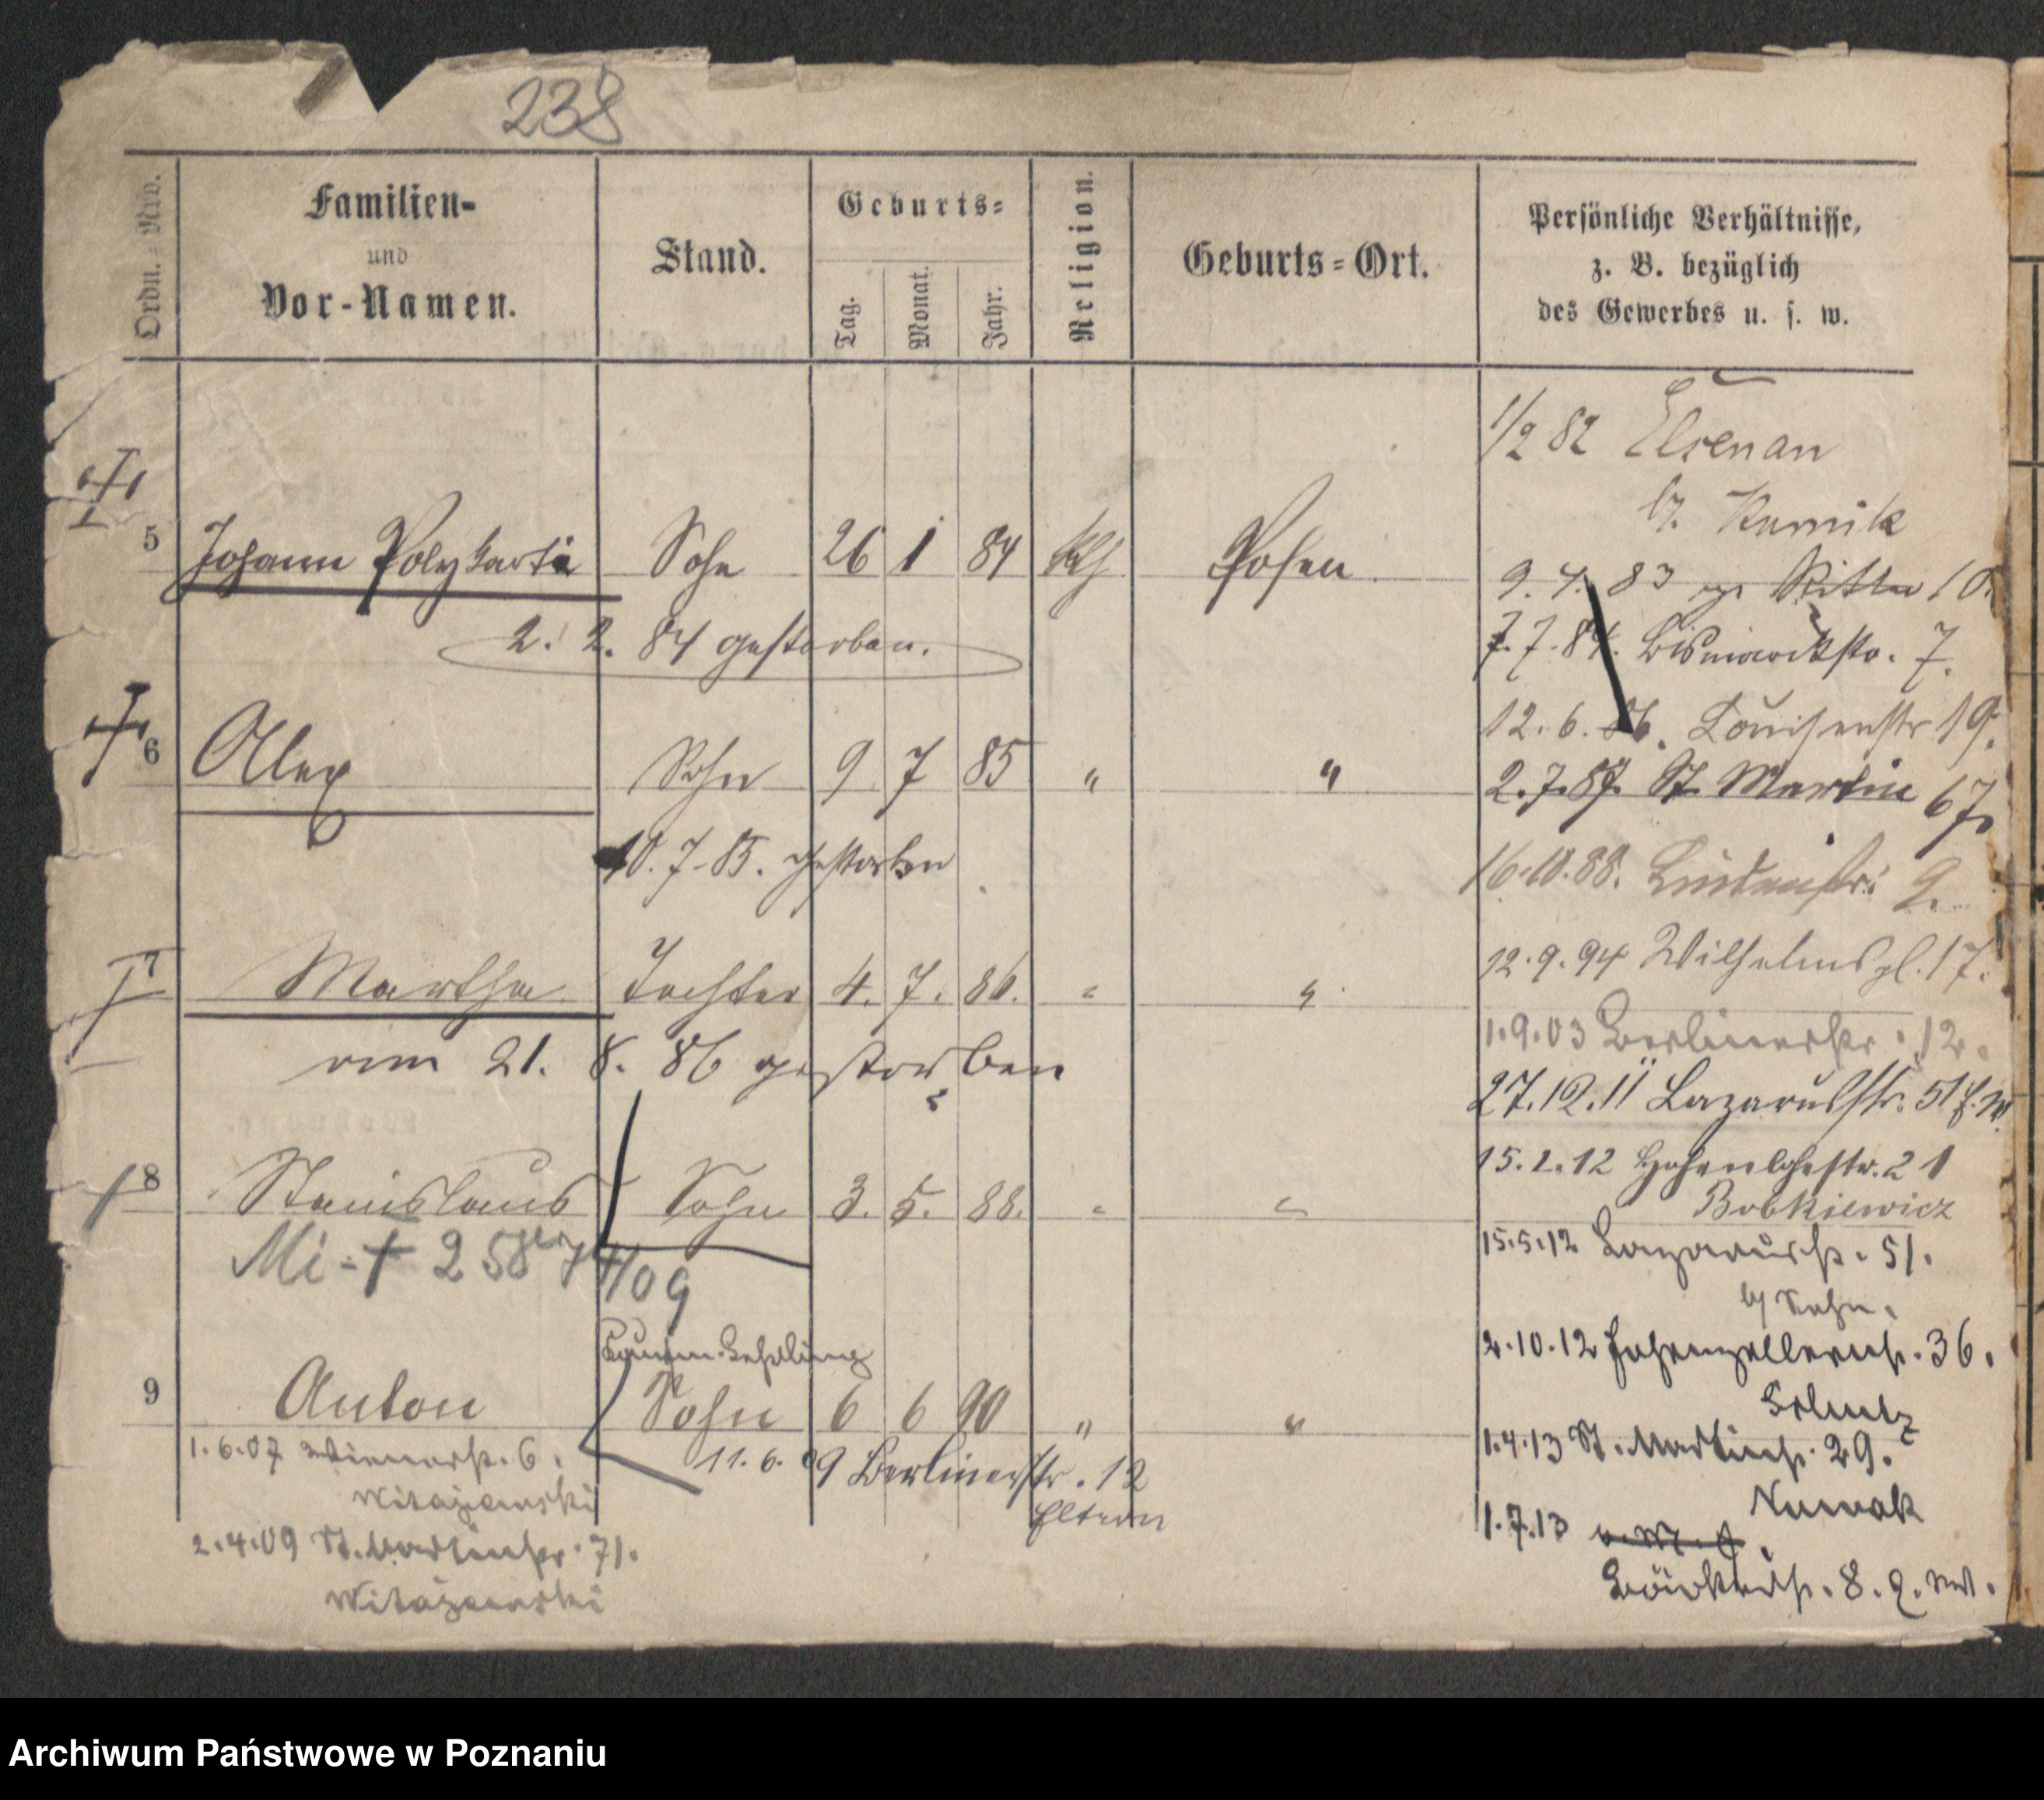 238
Ordn.-Nro.
Familien-
und
Vor-Namen.
Stand.
Geburts-
Tag.
Monat.
Jahr.
Religion.
Geburts-Ort.
Persönliche Verhältnisse,
z. B. bezüglich
des Gewerbes u. s. w.
1/2 82 Elsenau
b. Kurnik
5 Johann Polykarp Sohn 26 1 84 kth Posen
2. 2. 84 gestorben.
9. 4. 83 Ritter 10.
7. 7. 84. Bismarckstr. 7.
12. 6. 86. Louisenstr 19.
6 Alex Sohn 9 7 85 " "
10. 7. 85. gestorben
2. 7. 87. St. Martin 67
16. 10. 88. Lindenstr. 9.
12. 9. 94 Wilhelmspl. 17.
7 Martha Tochter 4. 7. 86. " "
am 21. 8. 86 gestorben
1. 9. 03 Berlinerstr. 12.
27. 12. 11 Lazarusstr. 51
15. 2. 12 Hohenlohestr. 21
Bobkiewicz
8 Stanislaus Sohn 3. 5. 88. " "
Mi
4/09
15. 5. 12 Lazarusstr. 51.
b/ Sohn.
2. 10. 12 Hohenzollernstr. 36.
9 Anton Sohn 6 6 90 " "
1. 6. 07 Wienerstr. 6.
Witazewski
11. 6. 09 Berlinerstr. 12
Eltern
2. 4. 09 St. Martinstr. 71.
Witazewski
1. 4. 13 St. Martinstr. 29.
Nowak
1. 7. 13
8.
Archiwum Państwowe w Poznaniu